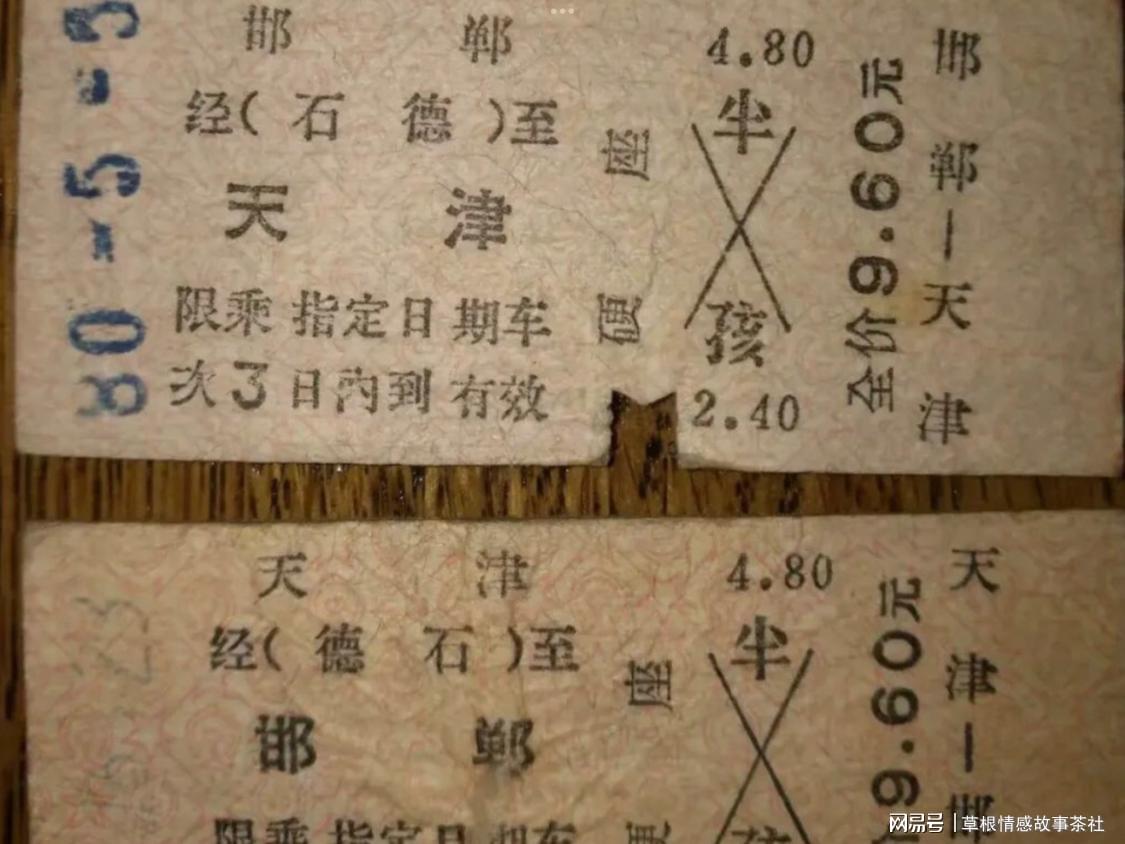 邯 郸
经(石 德)至
天 津
限乘指定日期车
次3日内到有效
硬座
4.80
半
孩
2.40
全价9.60元
邯郸—天津
80-5-3
天 津
经(德 石)至
邯 郸
限乘指定日期车
硬座
4.80
半
孩
9.60元
天津—邯
网易号 | 草根情感故事茶社